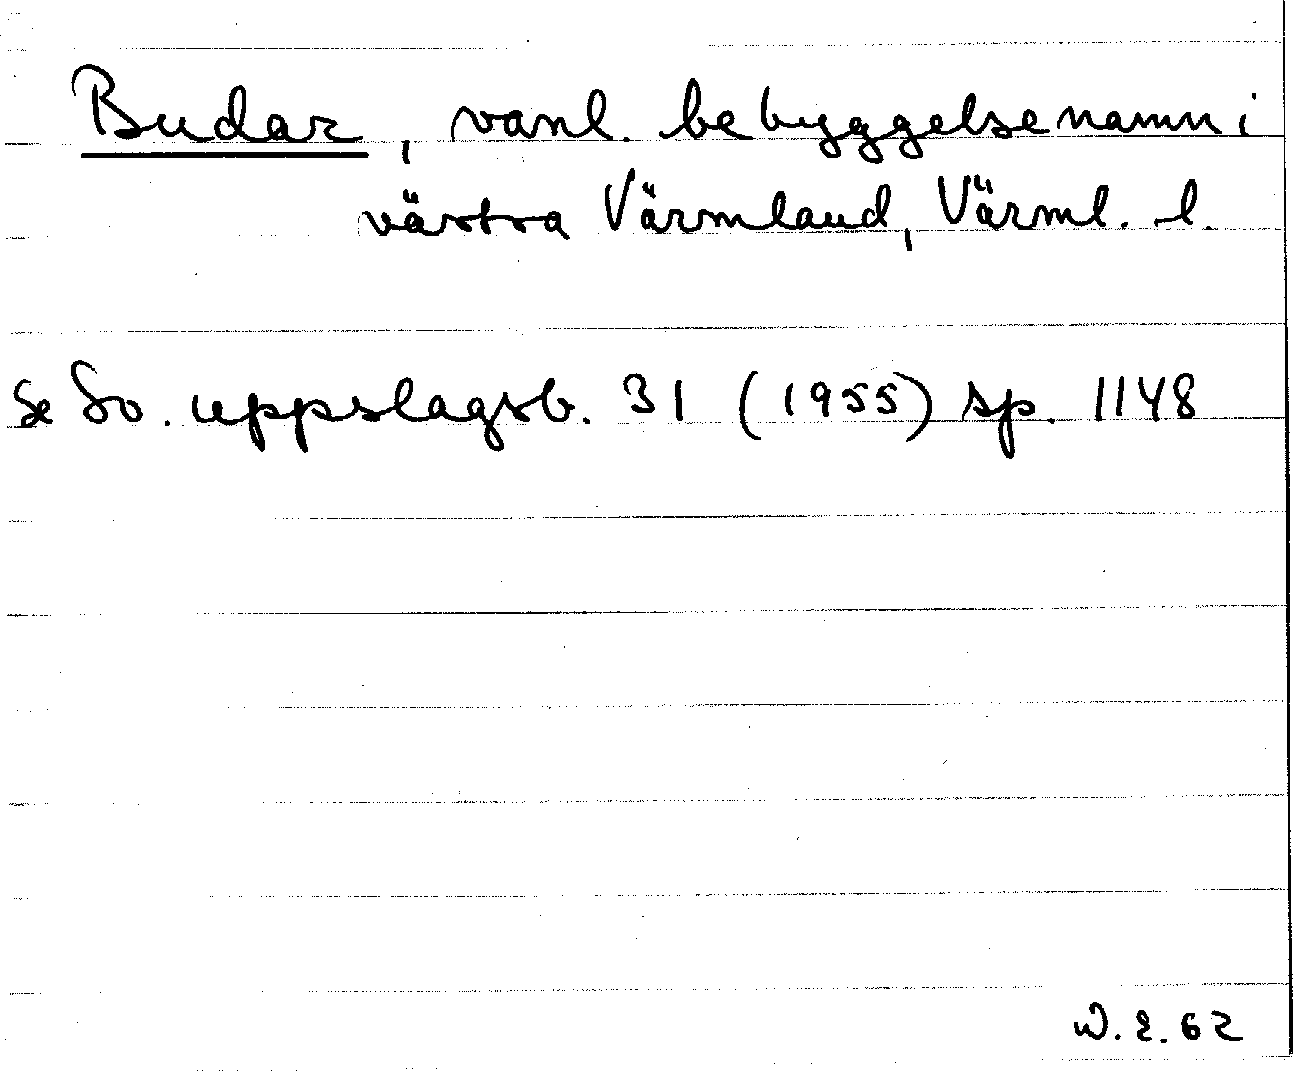 Budar, vanl. bebyggelsenamn i
västra Värmland, Värml. l.
Se Sv. uppslagsb. 31 (1955) sp. 1148
W. E. 62